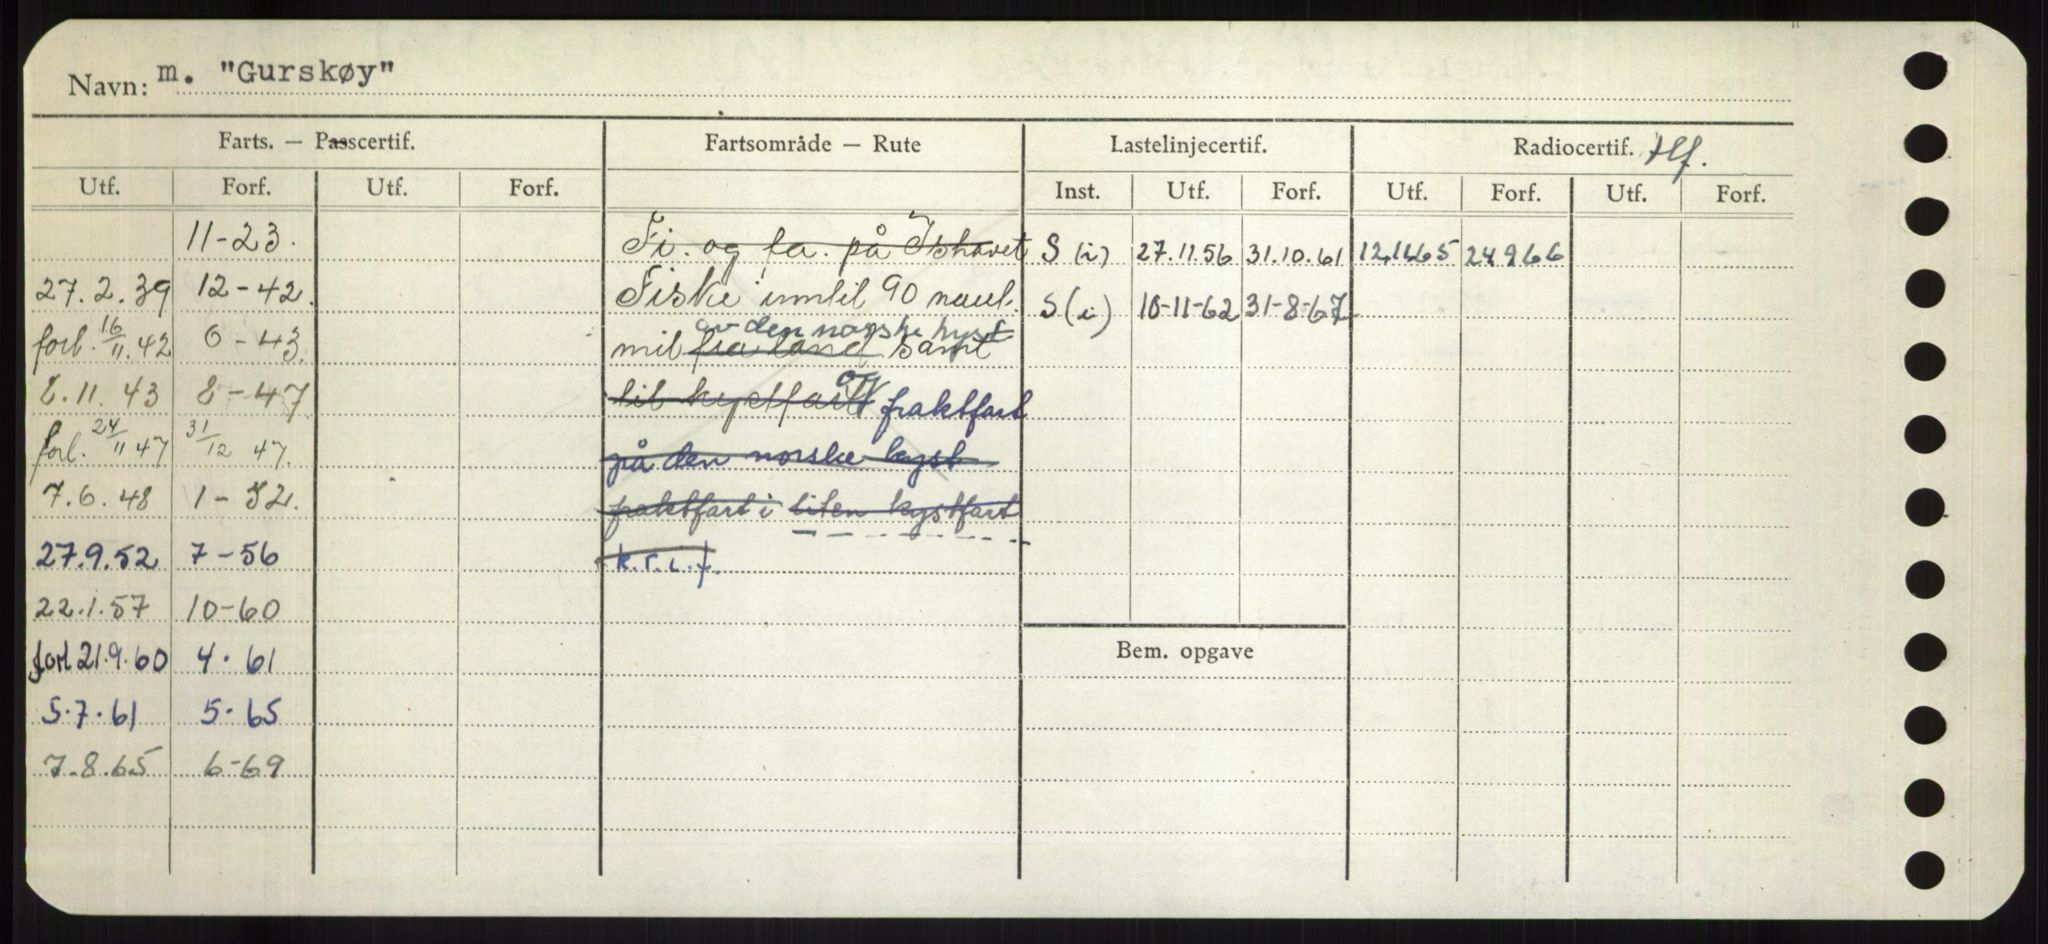 Navn: m. "Gurskøy"
Farts. — Passcertif. Fartsområde — Rute Lastelinjecertif. Radiocertif. tlf.
Utf. Forf. Utf. Forf. Inst. Utf. Forf. Utf. Forf. Utf. Forf.
11-23. Fi. og fa. på Ishavet S (i) 27.11.56 31.10.61 12.11.65 24.9.66
27.2.39 12-42. Fiske inntil 90 naut. S (i) 10-11-62 31-8-67
av den norske kyst
forl. 16/11.42 6-43. mil fra land samt
og
8.11.43 8-47 til kystfart fraktfart
forl. 24/11 47 31/12 47. på den norske kyst
7.6.48 1-52. fraktfart i liten kystfart
27.9.52 7-56 k.r.l.f.
22.1.57 10-60
forl 21.9.60 4.61 Bem. opgave
5.7.61 5.65
7.8.65 6-69